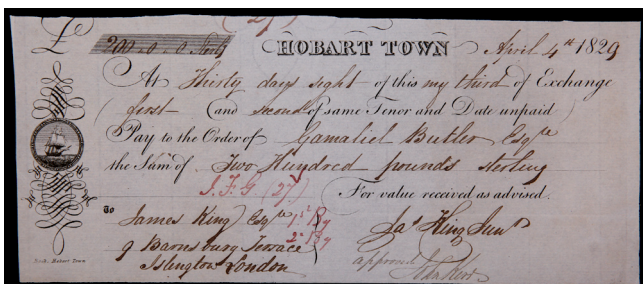 £ 200=0=0 Sterg HOBART TOWN April 4th 1829
At Thirty days sight of this my third of Exchange
(first and second of same Tenor and Date unpaid)
Pay to the Order of Gamaliel Butler Esqre
the Sum of Two Hundred pounds sterling
For value received as advised.
To James King Esqre
9 Barnsbury Terrace
Islington London
Jas King Junr
approved